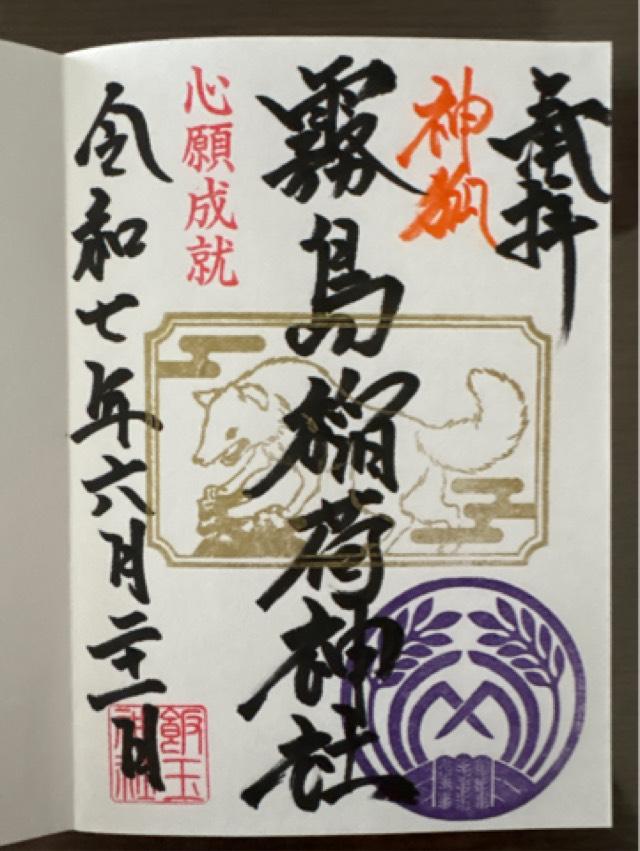 奉拝
神狐
霧島稲荷神社
心願成就
令和七年六月二十一日
飯玉神社